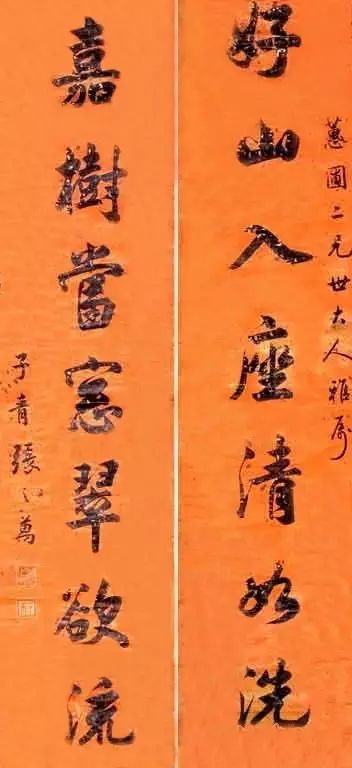 蕙圃二兄世大人雅属
好山入座清如洗
嘉樹當窓翠欲流
子青張之萬